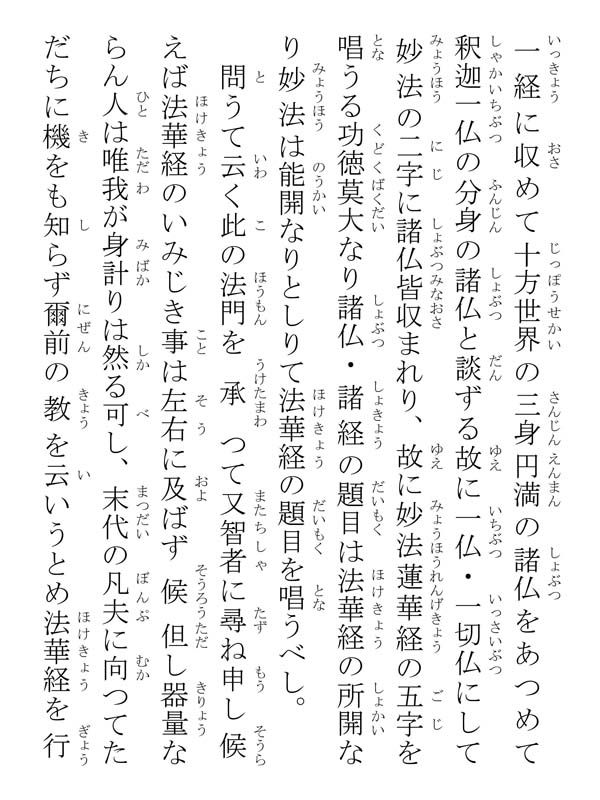 一経に収めて十方世界の三身円満の諸仏をあつめて
釈迦一仏の分身の諸仏と談ずる故に一仏・一切仏にして
妙法の二字に諸仏皆収まれり、故に妙法蓮華経の五字を
唱うる功徳莫大なり諸仏・諸経の題目は法華経の所開な
り妙法は能開なりとしりて法華経の題目を唱うべし。
問うて云く此の法門を承つて又智者に尋ね申し候
えば法華経のいみじき事は左右に及ばず候但し器量な
らん人は唯我が身計りは然る可し、末代の凡夫に向つてた
だちに機をも知らず爾前の教を云いうとめ法華経を行